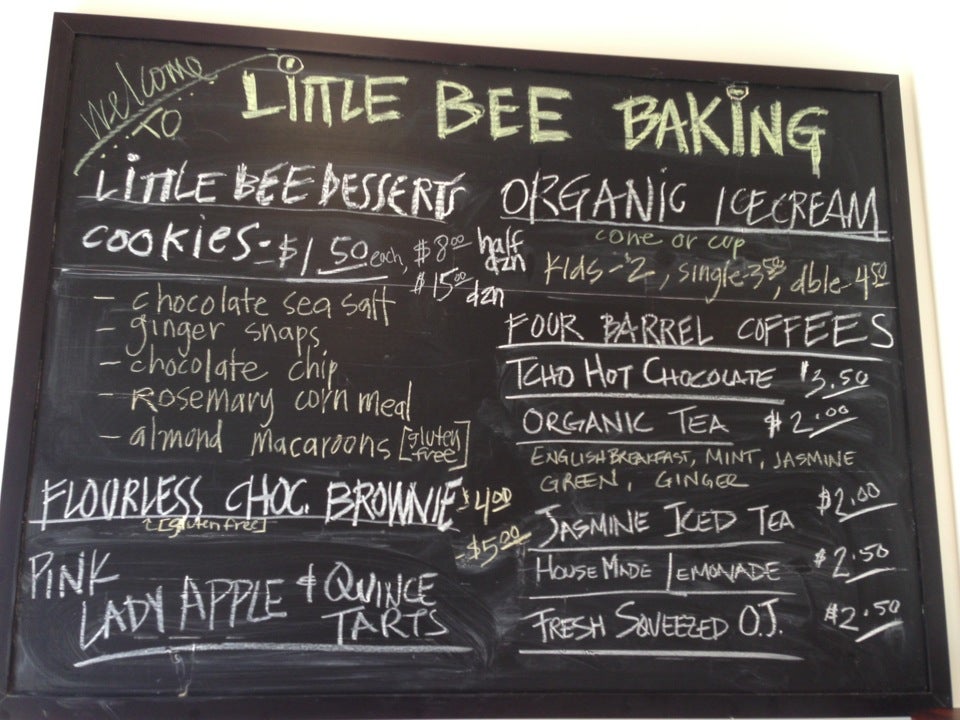 Welcome TO
LITTLE BEE BAKING
LITTLE BEE DESSERTS
COOKIES - $1.50 each, $8.00 half dzn
$15.00 dzn
- chocolate sea salt
- ginger snaps
- chocolate chip
- Rosemary corn meal
- almond macaroons [gluten free]
FLOURLESS CHOC. BROWNIE $4.00
[gluten free]
- $5.00
PINK
LADY APPLE & QUINCE
TARTS
ORGANIC ICECREAM
cone or cup
kids - 2, single - 3.50, dble - 4.50
FOUR BARREL COFFEES
TCHO HOT CHOCOLATE $3.50
ORGANIC TEA $2.00
ENGLISH BREAKFAST, MINT, JASMINE
GREEN, GINGER
JASMINE ICED TEA $2.00
HOUSE MADE LEMONADE $2.50
FRESH SQUEEZED O.J. $2.50